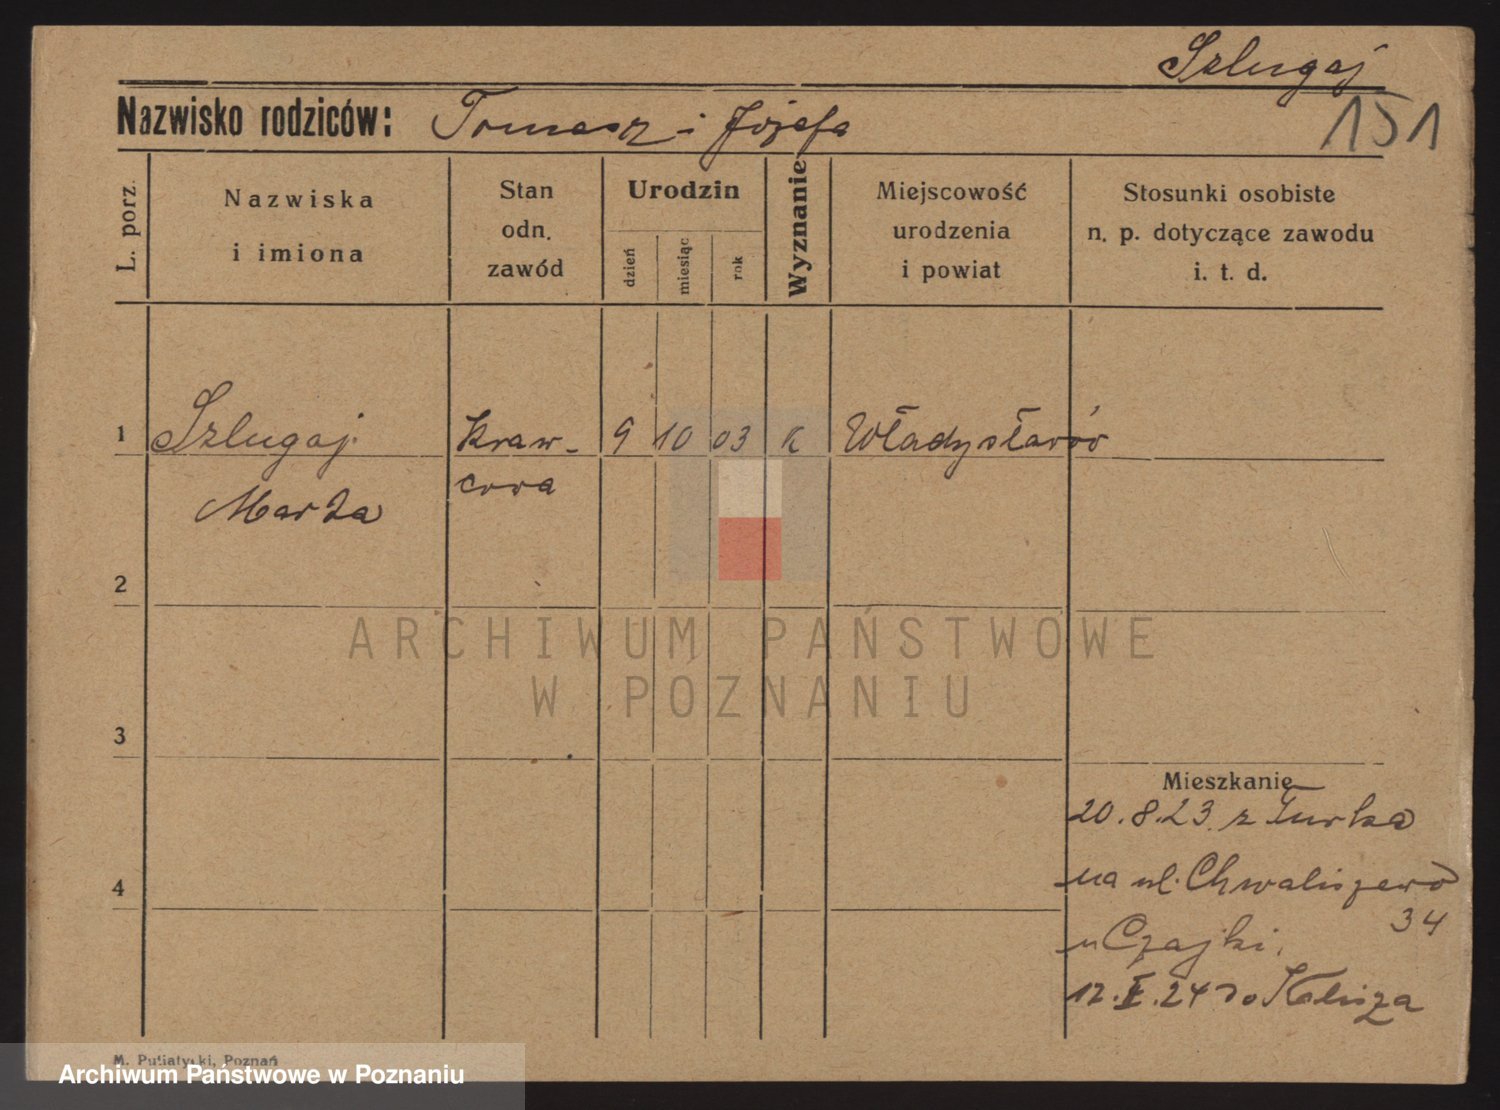 Szlugaj
Nazwisko rodziców: Tomasz i Józefa
151
L. porz.
Nazwiska
i imiona
Stan
odn.
zawód
Urodzin
dzień
miesiąc
rok
Wyznanie
Miejscowość
urodzenia
i powiat
Stosunki osobiste
n. p. dotyczące zawodu
i. t. d.
1 Szlugaj Kraw- 9 10 03 K Władysławów
Marta cowa
2
ARCHIWUM PAŃSTWOWE
W POZNANIU
3
Mieszkanie
20.8.23. z Turka
4
na ul. Chwaliszewo
34
u Czajki.
12. .24 do Kalisza
M. Putiatycki, Poznań
Archiwum Państwowe w Poznaniu